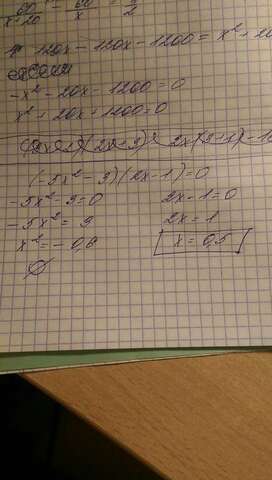 60/x-20 - 60/x = 3/2
120x - 120x - 1200 = x² + 20
-x² - 20x - 1200 = 0
x² + 20x + 1200 = 0
(-5x² - 3)(2x - 1) = 0
-5x² - 3 = 0    2x - 1 = 0
-5x² = 3    2x = 1
x² = -0,6    x = 0,5
∅